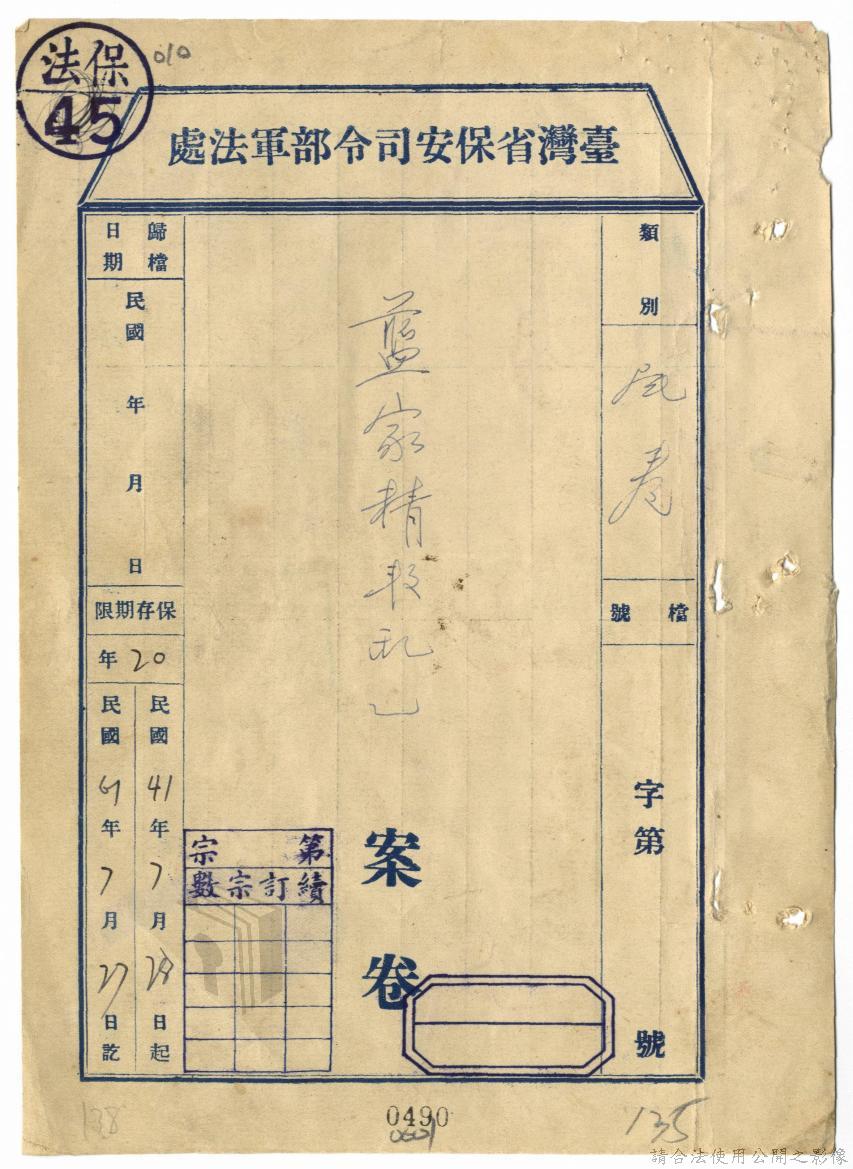 保法
45
010
臺灣省保安司令部軍法處
類別
檔號
字第 號
藍家精叛乱
案卷
第 宗
續訂宗數
歸檔日期
民國 年 月 日
保存期限
20年
民國41年7月28日起
民國61年7月27日訖
138
0490
135
請合法使用公開之影像